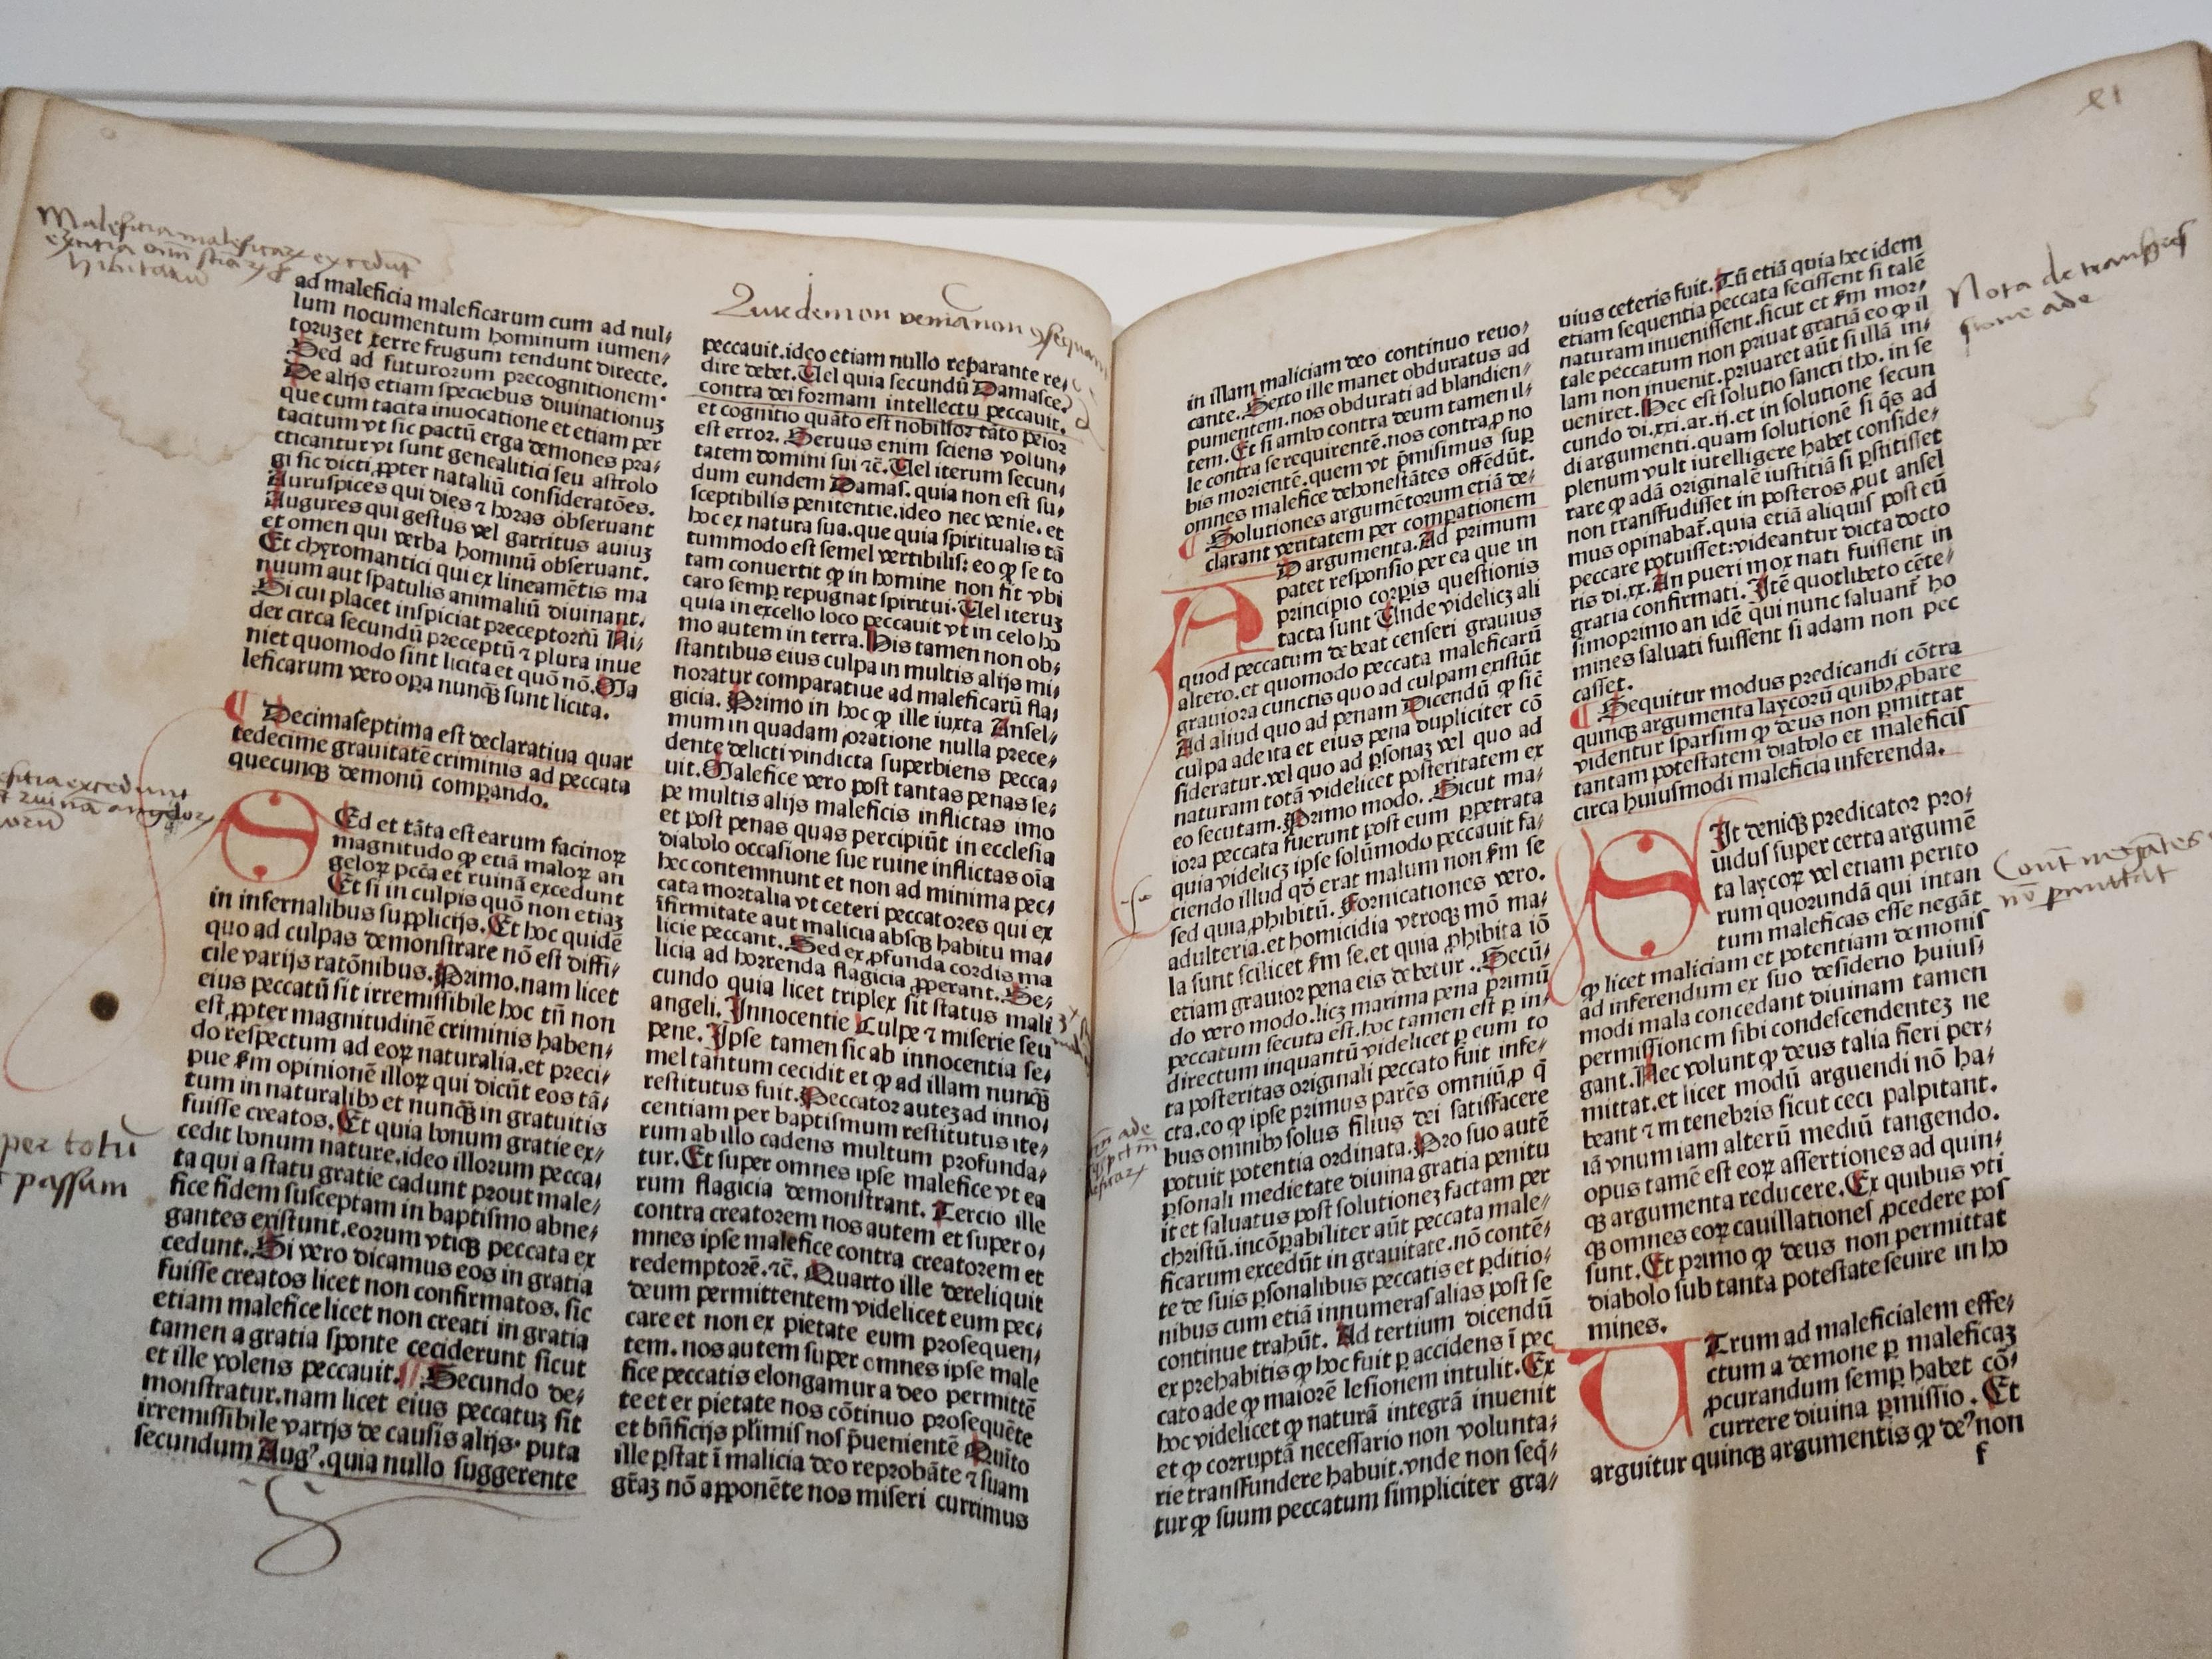 Maleficia maleficarum excedunt
ad maleficia maleficarum cum ad nul⸗
lum nocumentum hominum iumen⸗
toruȝ et terre frugum tendunt directe.
Sed ad futurorum precognitionem.
De alijs etiam speciebus diuinationuȝ
que cum tacita inuocatione et etiam per
tacitum vt sic pactū erga demones pra⸗
cticantur vt sunt genealitici seu astrolo
gi sic dicti ꝓpter nataliū consideratōes.
Auruspices qui dies ⁊ horas obseruant
Augures qui gestus vel garritus auiuȝ
et omen qui verba hominū obseruant.
Et chyromantici qui ex lineamētis ma
nuum aut spatulis animaliū diuinant.
Si cui placet inspiciat preceptoriū Ni⸗
der circa secundū preceptū ⁊ plura inue
niet quomodo sint licita et quō nō. Ma
leficarum vero oꝑa nunqꝫ sunt licita.
¶ Decimaseptima est declaratiua quar
tedecime grauitatē criminis ad peccata
quecunqꝫ demonū comꝑando.
SEd et tāta est earum facinoꝝ
magnitudo ꝙ etiā maloꝝ an
geloꝝ pctā et ruinā excedunt
Et si in culpis quō non etiaȝ
in infernalibus supplicijs. Et hoc quidē
quo ad culpas demonstrare nō est diffi⸗
cile varijs ratōnibus. Primo. nam licet
eius peccatū sit irremissibile hoc tn̄ non
est ꝓpter magnitudinē criminis haben⸗
do respectum ad eoꝝ naturalia. et preci⸗
pue ẜm opinionē illoꝝ qui dicūt eos tā⸗
tum in naturalibꝰ et nunqꝫ in gratuitis
fuisse creatos. Et quia bonum gratie ex⸗
cedit bonum nature. ideo illorum pecca⸗
ta qui a statu gratie cadunt prout male⸗
fice fidem susceptam in baptismo abne⸗
gantes existunt. eorum vtiqꝫ peccata ex
cedunt. Si vero dicamus eos in gratia
fuisse creatos licet non confirmatos. sic
etiam malefice licet non creati in gratia
tamen a gratia sponte ceciderunt sicut
et ille volens peccauit. ¶ Secundo de⸗
monstratur. nam licet eius peccatuȝ sit
irremissibile varijs de causis alijs. puta
secundum Augꝰ. quia nullo suggerente
per totū
passum
Que demon veniā non ꝯsequatur
peccauit. ideo etiam nullo reparante re⸗
dire debet. Vel quia secundū Damasce.
contra dei formam intellectu peccauit.
et cognitio quāto est nobilior tāto peior
est error. Seruus enim sciens volun⸗
tatem domini sui ⁊c̄. Vel iterum secun⸗
dum eundem Damas. quia non est su⸗
sceptibilis penitentie. ideo nec venie. et
hoc ex natura sua. que quia spiritualis tā
tummodo est semel vertibilis: eo ꝙ se to
tam conuertit ꝙ in homine non fit vbi
caro semꝑ repugnat spiritui. Vel iteruȝ
quia in excelso loco peccauit vt in celo ho
mo autem in terra. His tamen non ob⸗
stantibus eius culpa in multis alijs mi⸗
noratur comparatiue ad maleficarū fla⸗
gicia. Primo in hoc ꝙ ille iuxta Ansel⸗
mum in quadam oratione nulla prece⸗
dente delicti vindicta superbiens pecca⸗
uit. Malefice vero post tantas penas se⸗
pe multis alijs maleficis inflictas imo
et post penas quas percipiūt in ecclesia
diabolo occasione sue ruine inflictas oīa
hec contemnunt et non ad minima pec⸗
cata mortalia vt ceteri peccatores qui ex
īfirmitate aut malicia absqꝫ habitu ma⸗
licie peccant. Sed ex ꝓfunda cordis ma
licia ad horrenda flagicia ꝓperant. Se⸗
cundo quia licet triplex sit status mali
angeli. Innocentie Culpe ⁊ miserie seu
pene. Ipse tamen sic ab innocentia se⸗
mel tantum cecidit et ꝙ ad illam nunqꝫ
restitutus fuit. Peccator auteȝ ad inno⸗
centiam per baptismum restitutus ite⸗
rum ab illo cadens multum profunda⸗
tur. Et super omnes ipse malefice vt ea
rum flagicia demonstrant. Tercio ille
contra creatorem nos autem et super o⸗
mnes ipse malefice contra creatorem et
redemptorē. ⁊c̄. Quarto ille dereliquit
deum permittentem videlicet eum pec⸗
care et non ex pietate eum prosequen⸗
tem. nos autem super omnes ipse male
fice peccatis elongamur a deo permittē
te et ex pietate nos cōtinuo prosequēte
et bn̄ficijs plīmis nos p̄uenientē Quīto
ille ꝑstat ī malicia deo reprobāte ⁊ suam
gr̄aȝ nō apponēte nos miseri currimus
xl
in illam maliciam deo continuo reuo⸗
cante. Sexto ille manet obduratus ad
pumentem. nos obdurati ad blandien⸗
tem. Et si ambo contra deum tamen il⸗
le contra se requirentē. nos contra ꝓ no
bis morientē. quem vt p̄misimus suꝑ
omnes malefice dehonestātes offēdūt.
¶ Solutiones argumētorum etiā de⸗
clarant veritatem per comꝑationem
AD argumenta. Ad primum
patet responsio per ea que in
principio corꝑis questionis
tacta sunt Unde videlicȝ ali
quod peccatum debeat censeri grauius
altero. et quomodo peccata maleficarū
grauiora cunctis quo ad culpam existūt
Ad aliud quo ad penam Dicendū ꝙ sic̄
culpa ade ita et eius pena dupliciter cō
sideratur. vel quo ad ꝑsonaȝ vel quo ad
naturam totā videlicet posteritatem ex
eo secutam. Primo modo. Sicut ma⸗
iora peccata fuerunt post eum ꝑpetrata
quia videlicȝ ipse solūmodo peccauit fa⸗
ciendo illud qd̄ erat malum non ẜm se
sed quia ꝓhibitū. Fornicationes vero.
adulteria. et homicidia vtroqꝫ mō ma⸗
la sunt scilicet ẜm se. et quia ꝓhibita iō
etiam grauior pena eis debetur. Secū⸗
do vero modo. licȝ maxima pena primū
peccatum secuta est. hoc tamen est ꝑ in⸗
directum inquantū videlicet ꝑ eum to
ta posteritas originali peccato fuit infe⸗
cta. eo ꝙ ipse primus parēs omniū. ꝓ q̄
bus omnibꝰ solus filius dei satisfacere
potuit potentia ordinata. Pro suo autē
ꝑsonali medietate diuina gratia penitu
it et saluatus post solutioneȝ factam per
christū. incōꝑabiliter aūt peccata male⸗
ficarum excedūt in grauitate. nō contē⸗
te de suis ꝑsonalibus peccatis et ꝑditio⸗
nibus cum etiā innumeras alias post se
continue trahūt. Ad tertium dicendū
ex prehabitis ꝙ hoc fuit ꝑ accidens ī pec
cato ade ꝙ maiorē lesionem intulit. Ex
hoc videlicet ꝙ naturā integrā inuenit
et ꝙ corruptā necessario non volunta⸗
rie transfundere habuit. vnde non seq̄⸗
tur ꝙ suum peccatum simpliciter gra⸗
uius ceteris fuit. Tū etiā quia hec idem
etiam sequentia peccata fecissent si talē
naturam inuenissent. sicut et ẜm mor⸗
tale peccatum non priuat gratiā eo ꝙ il
lam non inuenit. priuaret aūt si illā in⸗
ueniret. Hec est solutio sancti tho. in se
cundo di. xxi. ar. ij. et in solutione secun
di argumenti. quam solutionē si q̄s ad
plenum vult iutelligere habet conside⸗
rare ꝙ adā originalē iustitiā si ꝑstitisset
non transfudisset in posteros ꝓut ansel
mus opinabat̄. quia etiā aliquis post eū
peccare potuisset: videantur dicta docto
ris di. xx. An pueri mox nati fuissent in
gratia confirmati. Itē quotlibeto cēte⸗
simoprimo an idē qui nunc saluant̄ ho
mines saluati fuissent si adam non pec
casset.
¶ Sequitur modus predicandi cōtra
quinqꝫ argumenta laycorū quibꝰ ꝓbare
videntur sparsim ꝙ deus non ꝑmittat
tantam potestatem diabolo et maleficis
circa huiusmodi maleficia inferenda.
SIt deniqꝫ predicator pro⸗
uidus super certa argumē
ta laycoꝝ vel etiam perito
rum quorundā qui intan
tum maleficas esse negāt
ꝙ licet maliciam et potentiam demonis
ad inferendum ex suo desiderio huius⸗
modi mala concedant diuinam tamen
permissionem sibi condescendenteȝ ne
gant. Nec volunt ꝙ deus talia fieri per⸗
mittat. et licet modū arguendi nō ha⸗
beant ⁊ in tenebris sicut ceci palpitant.
iā vnum iam alterū mediū tangendo.
opus tamē est eoꝝ assertiones ad quin⸗
qꝫ argumenta reducere. Ex quibus vti
qꝫ omnes eoꝝ cauillationes ꝓcedere pos
sunt. Et primo ꝙ deus non permittat
diabolo sub tanta potestate seuire in ho
mines.
UTrum ad maleficialem effe⸗
ctum a demone ꝑ maleficaȝ
ꝓcurandum semꝑ habet cō⸗
currere diuina ꝑmissio. Et
arguitur quinqꝫ argumentis ꝙ deꝰ non
f
Nota de transgres
sione ade